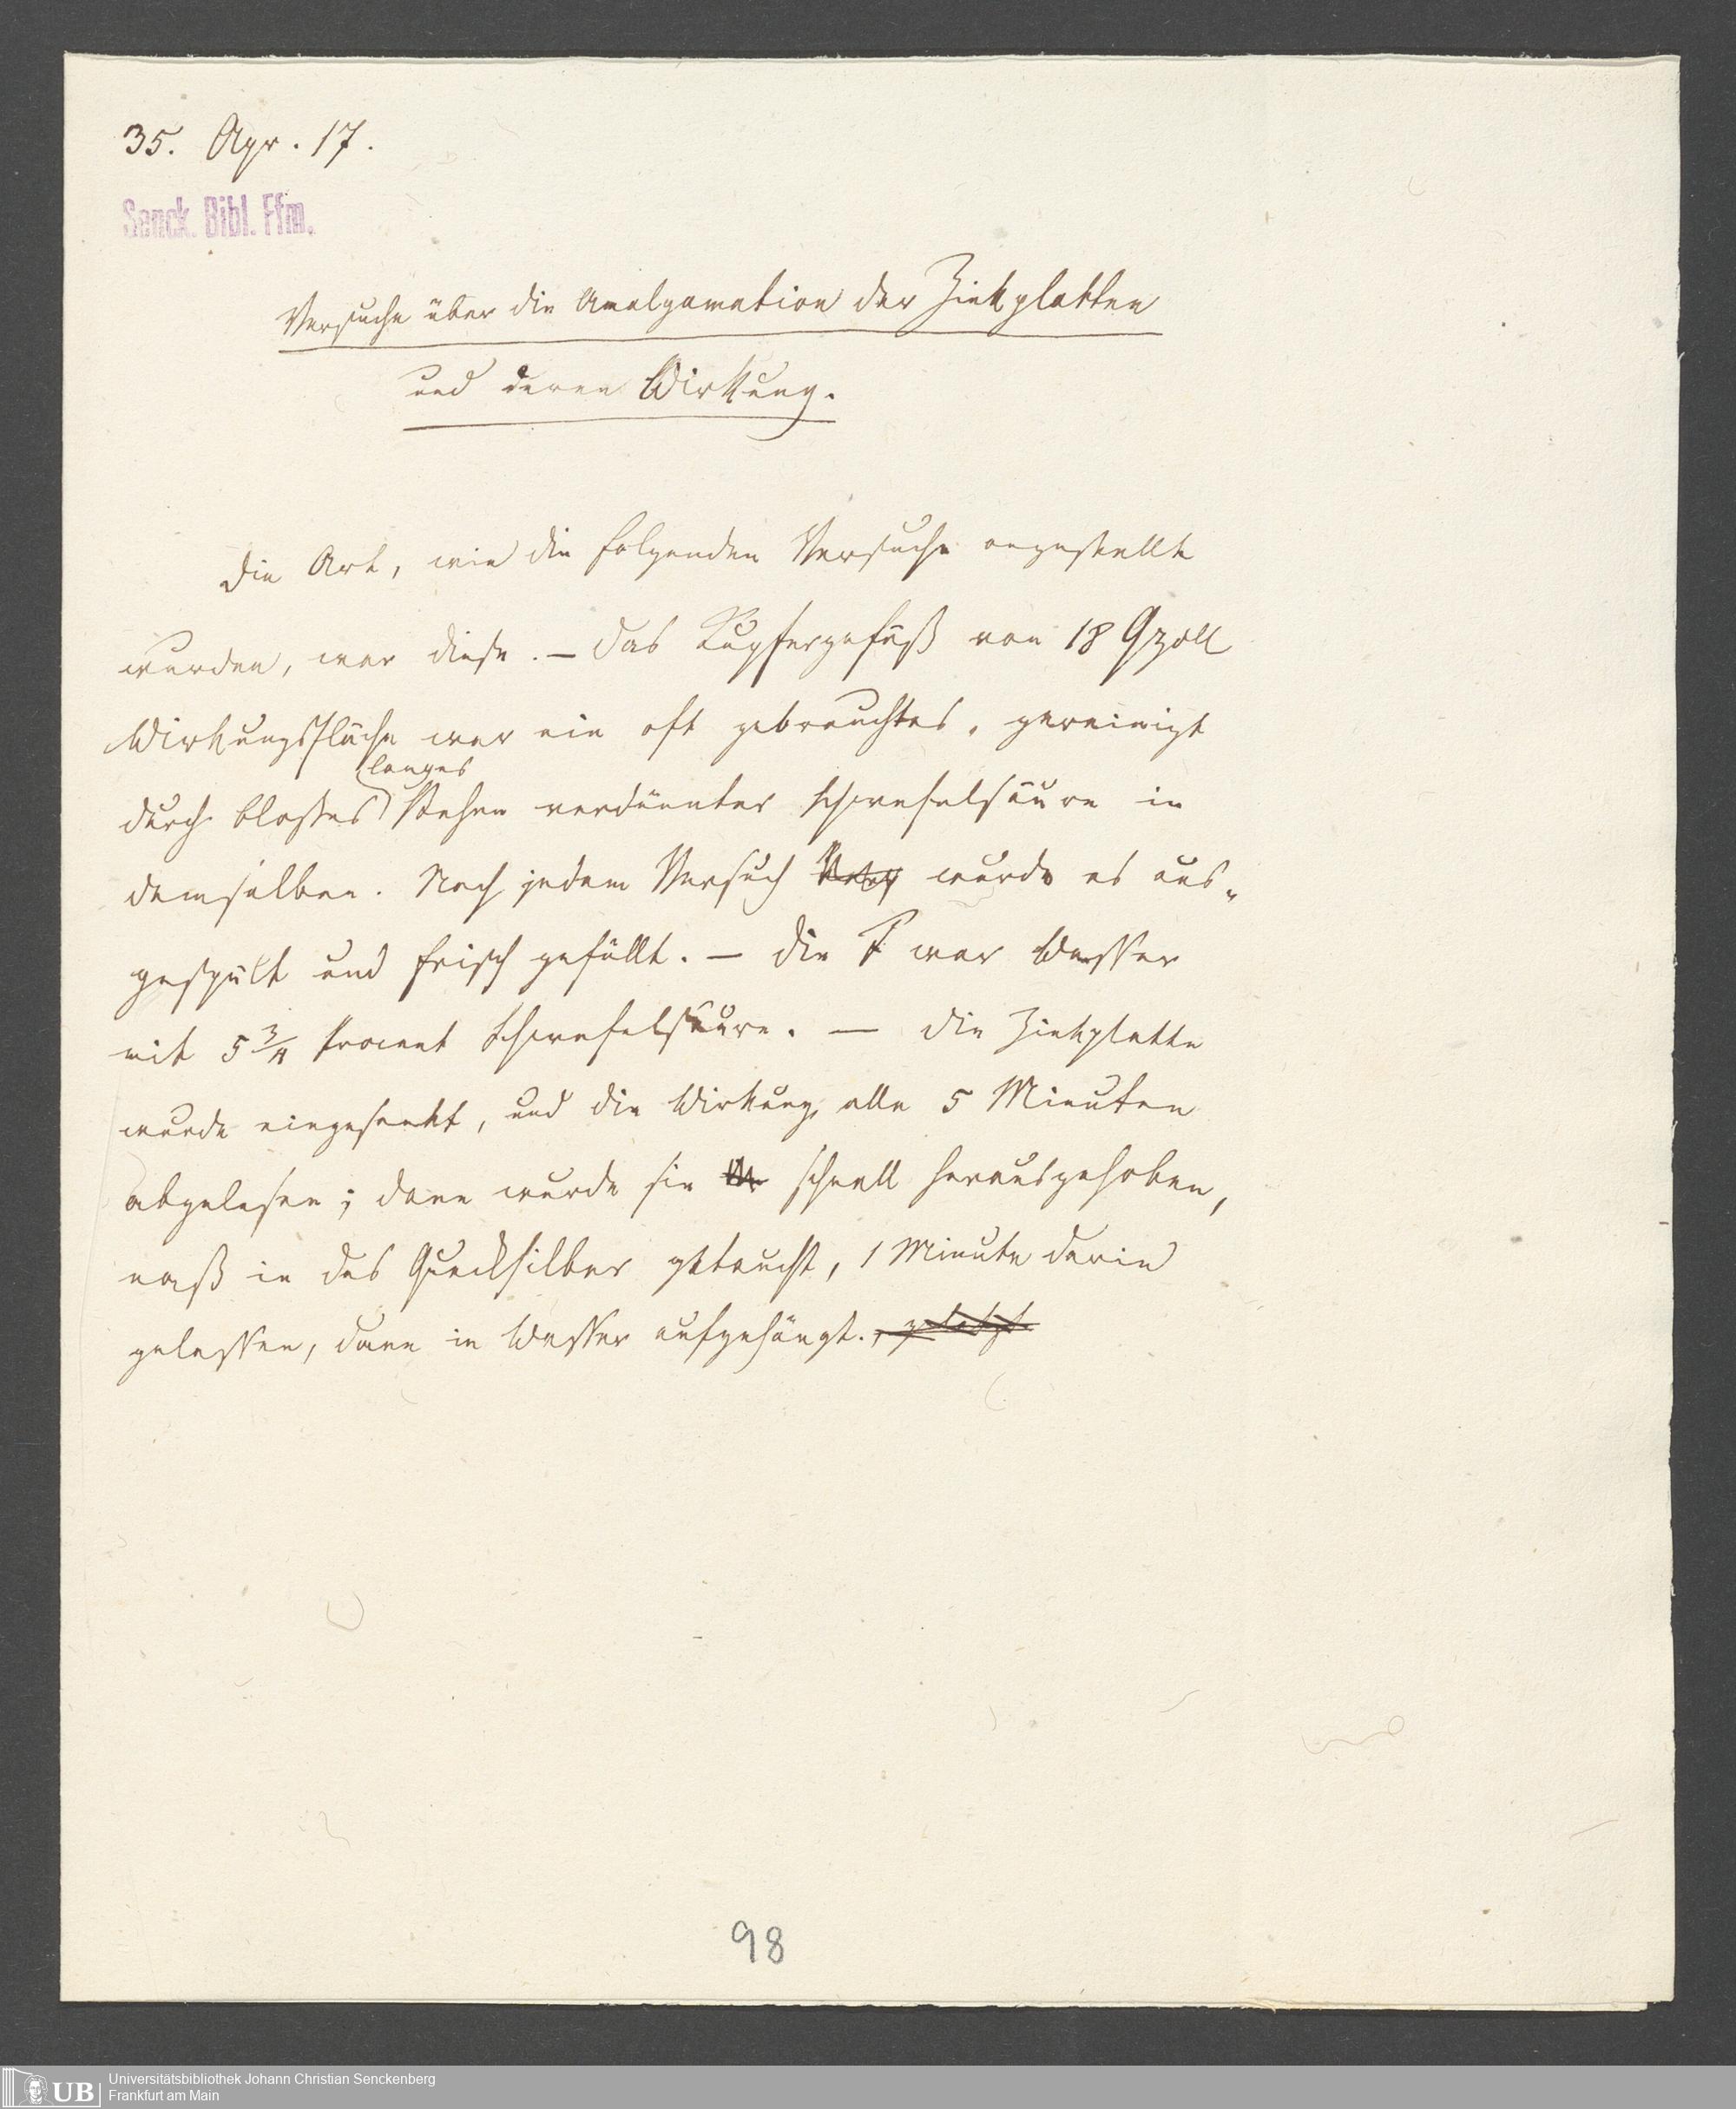 35. Apr. 17.
Senck. Bibl. Ffm.
Versuche über die Amalgamation der Zinkplatten
und deren Wirkung.
Die Art, wie die folgenden Versuche angestellt
wurden, war diese. — Das Kupfergefäß von 18 Qzoll
Wirkungsfläche war ein oft gebrauchtes, gereinigt
langes
durch bloßes Stehen verdünnter Schwefelsäure in
demselben. Nach jedem Versuch wurde es aus-
gespült und frisch gefüllt. — Die F war Wasser
mit 5 3/4 Procent Schwefelsäure. — Die Zinkplatte
wurde eingesenkt, und die Wirkung alle 5 Minuten
abgelesen; dann wurde sie schnell herausgehoben,
naß in das Quecksilber getaucht, 1 Minute darin
gelassen, dann in Wasser aufgehängt.
98
UB
Universitätsbibliothek Johann Christian Senckenberg
Frankfurt am Main